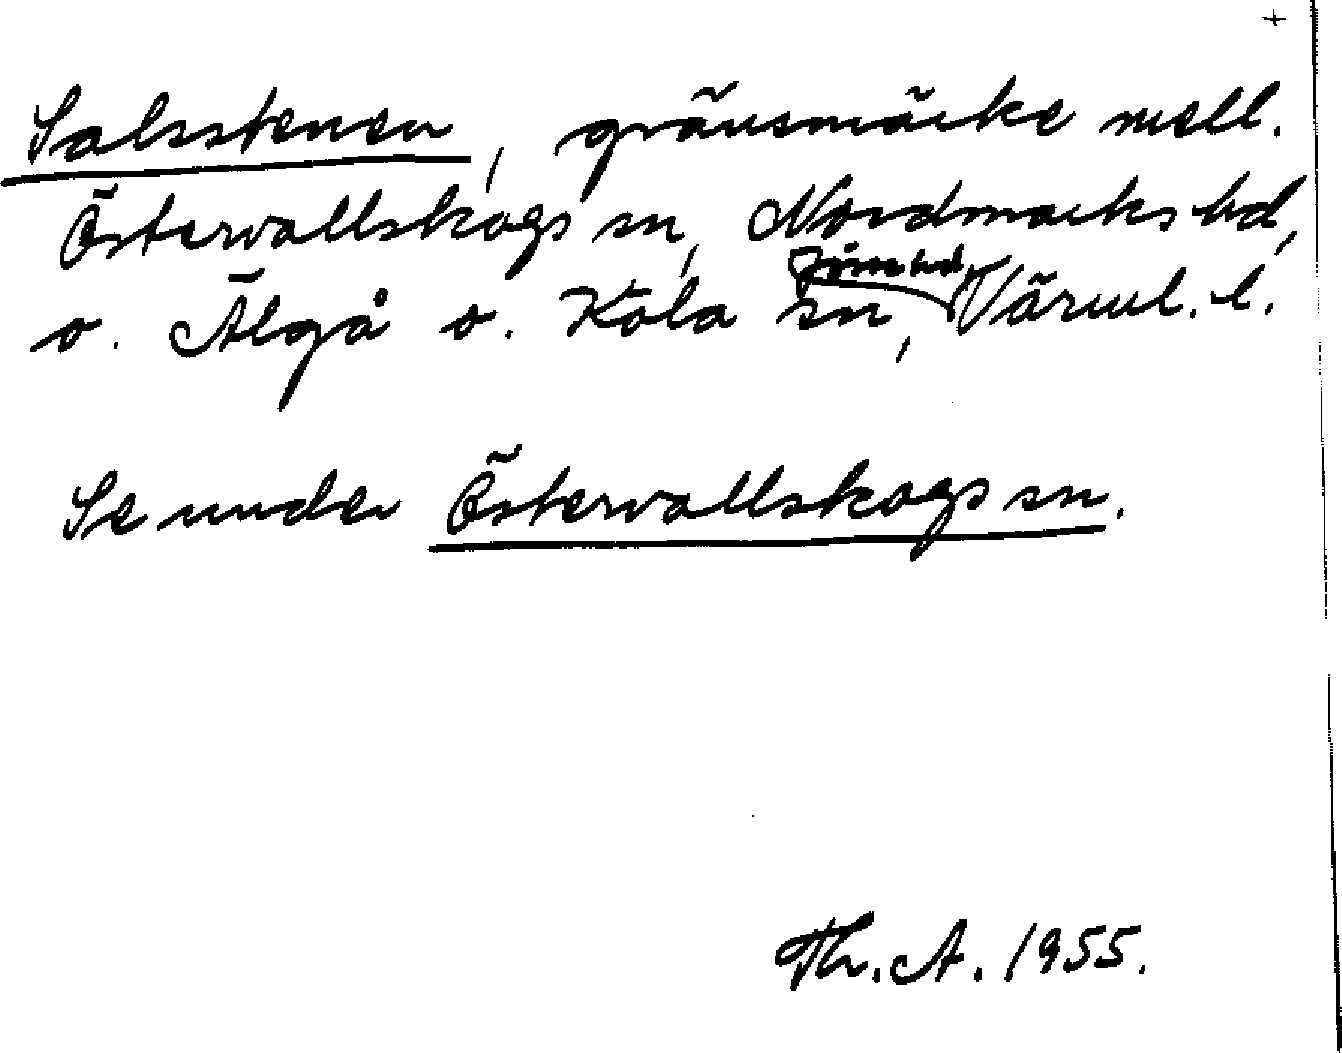 +
Salsstenen, gränsmärke mell.
Östervallskogs sn, Nordmarks hd,
o. Älgå o. Köla sn, Jösse hd, Värml. l.
Se under Östervallskogs sn.
Th. A. 1955.